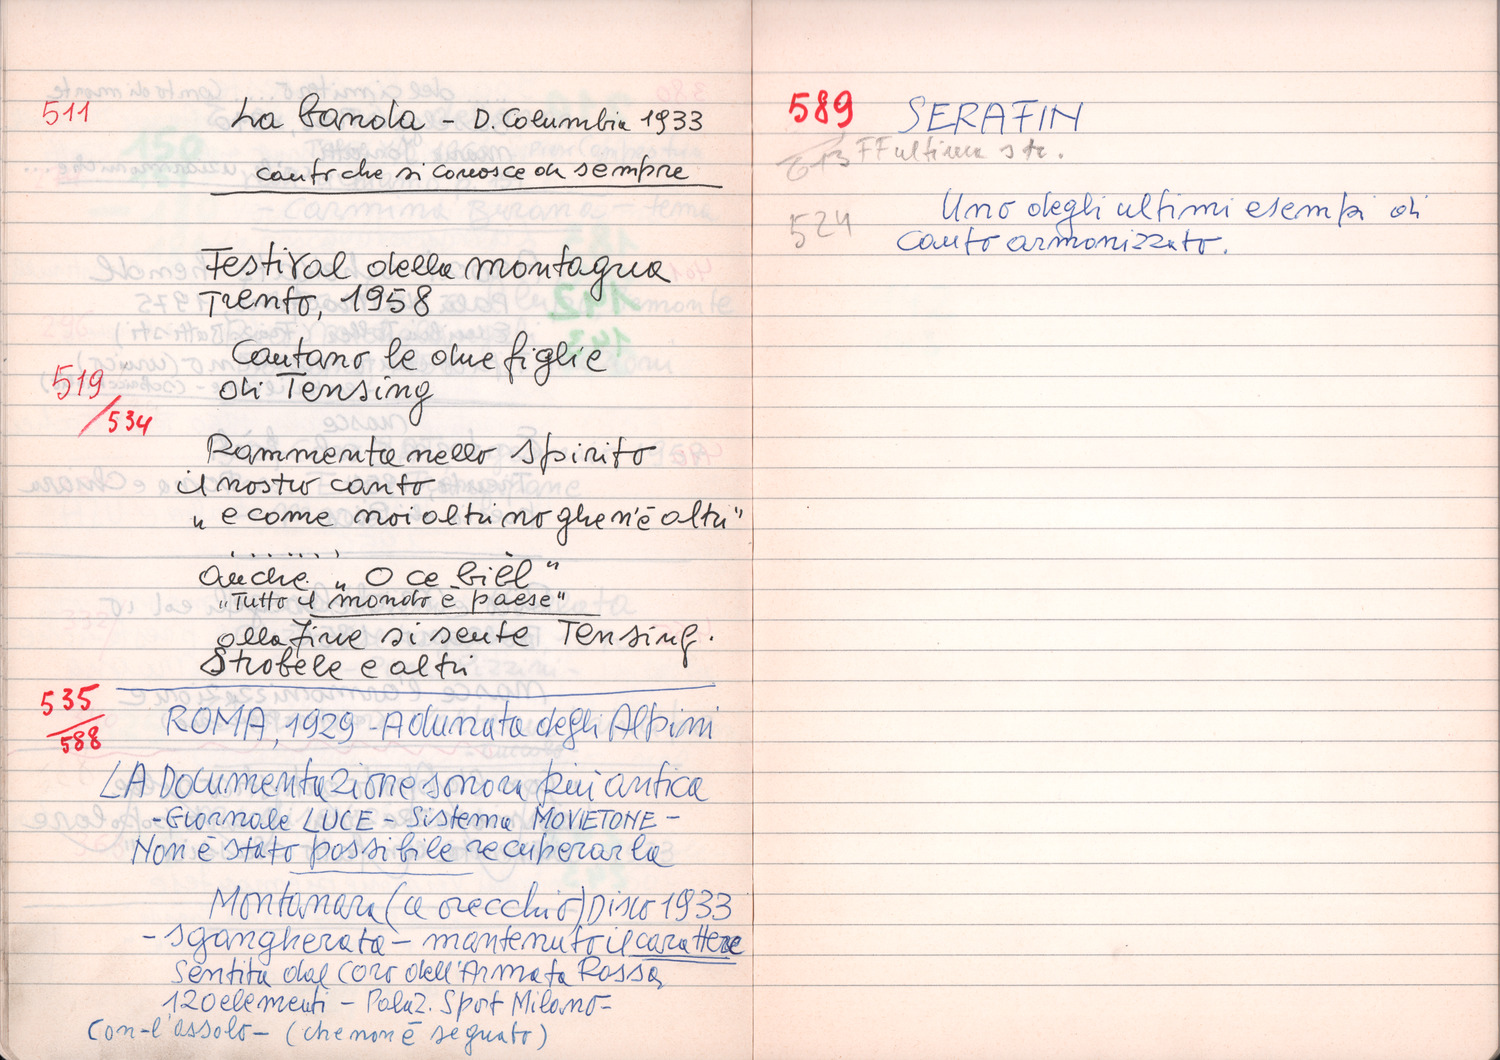 511
La banda - D. Columbia 1933
canto che si conosce da sempre
Festival della montagna
Trento, 1958
Cantano le due figlie
di Tensing
519
/534
Rammenta nello spirito
il nostro canto
„ e come noi altri no ghen'è altri"
. . . . . . ,
anche „ O ce bièl "
"Tutto il mondo è paese"
alla fine si sente Tensing.
Strobele e altri
535
/588
ROMA, 1929 - Adunata degli Alpini
LA Documentazione sonora più antica
- Giornale LUCE - Sistema MOVIETONE -
Non è stato possibile recuperarla
Montanara (a orecchio) Disco 1933
- sgangherata - mantenuto il carattere
Sentita dal Coro dell'Armata Rossa
120 elementi - Palaz. Sport Milano -
Con - l'assolo - (che non è segnato)
589 SERAFIN
613 FF ultima str.
524
Uno degli ultimi esempi di
canto armonizzato.